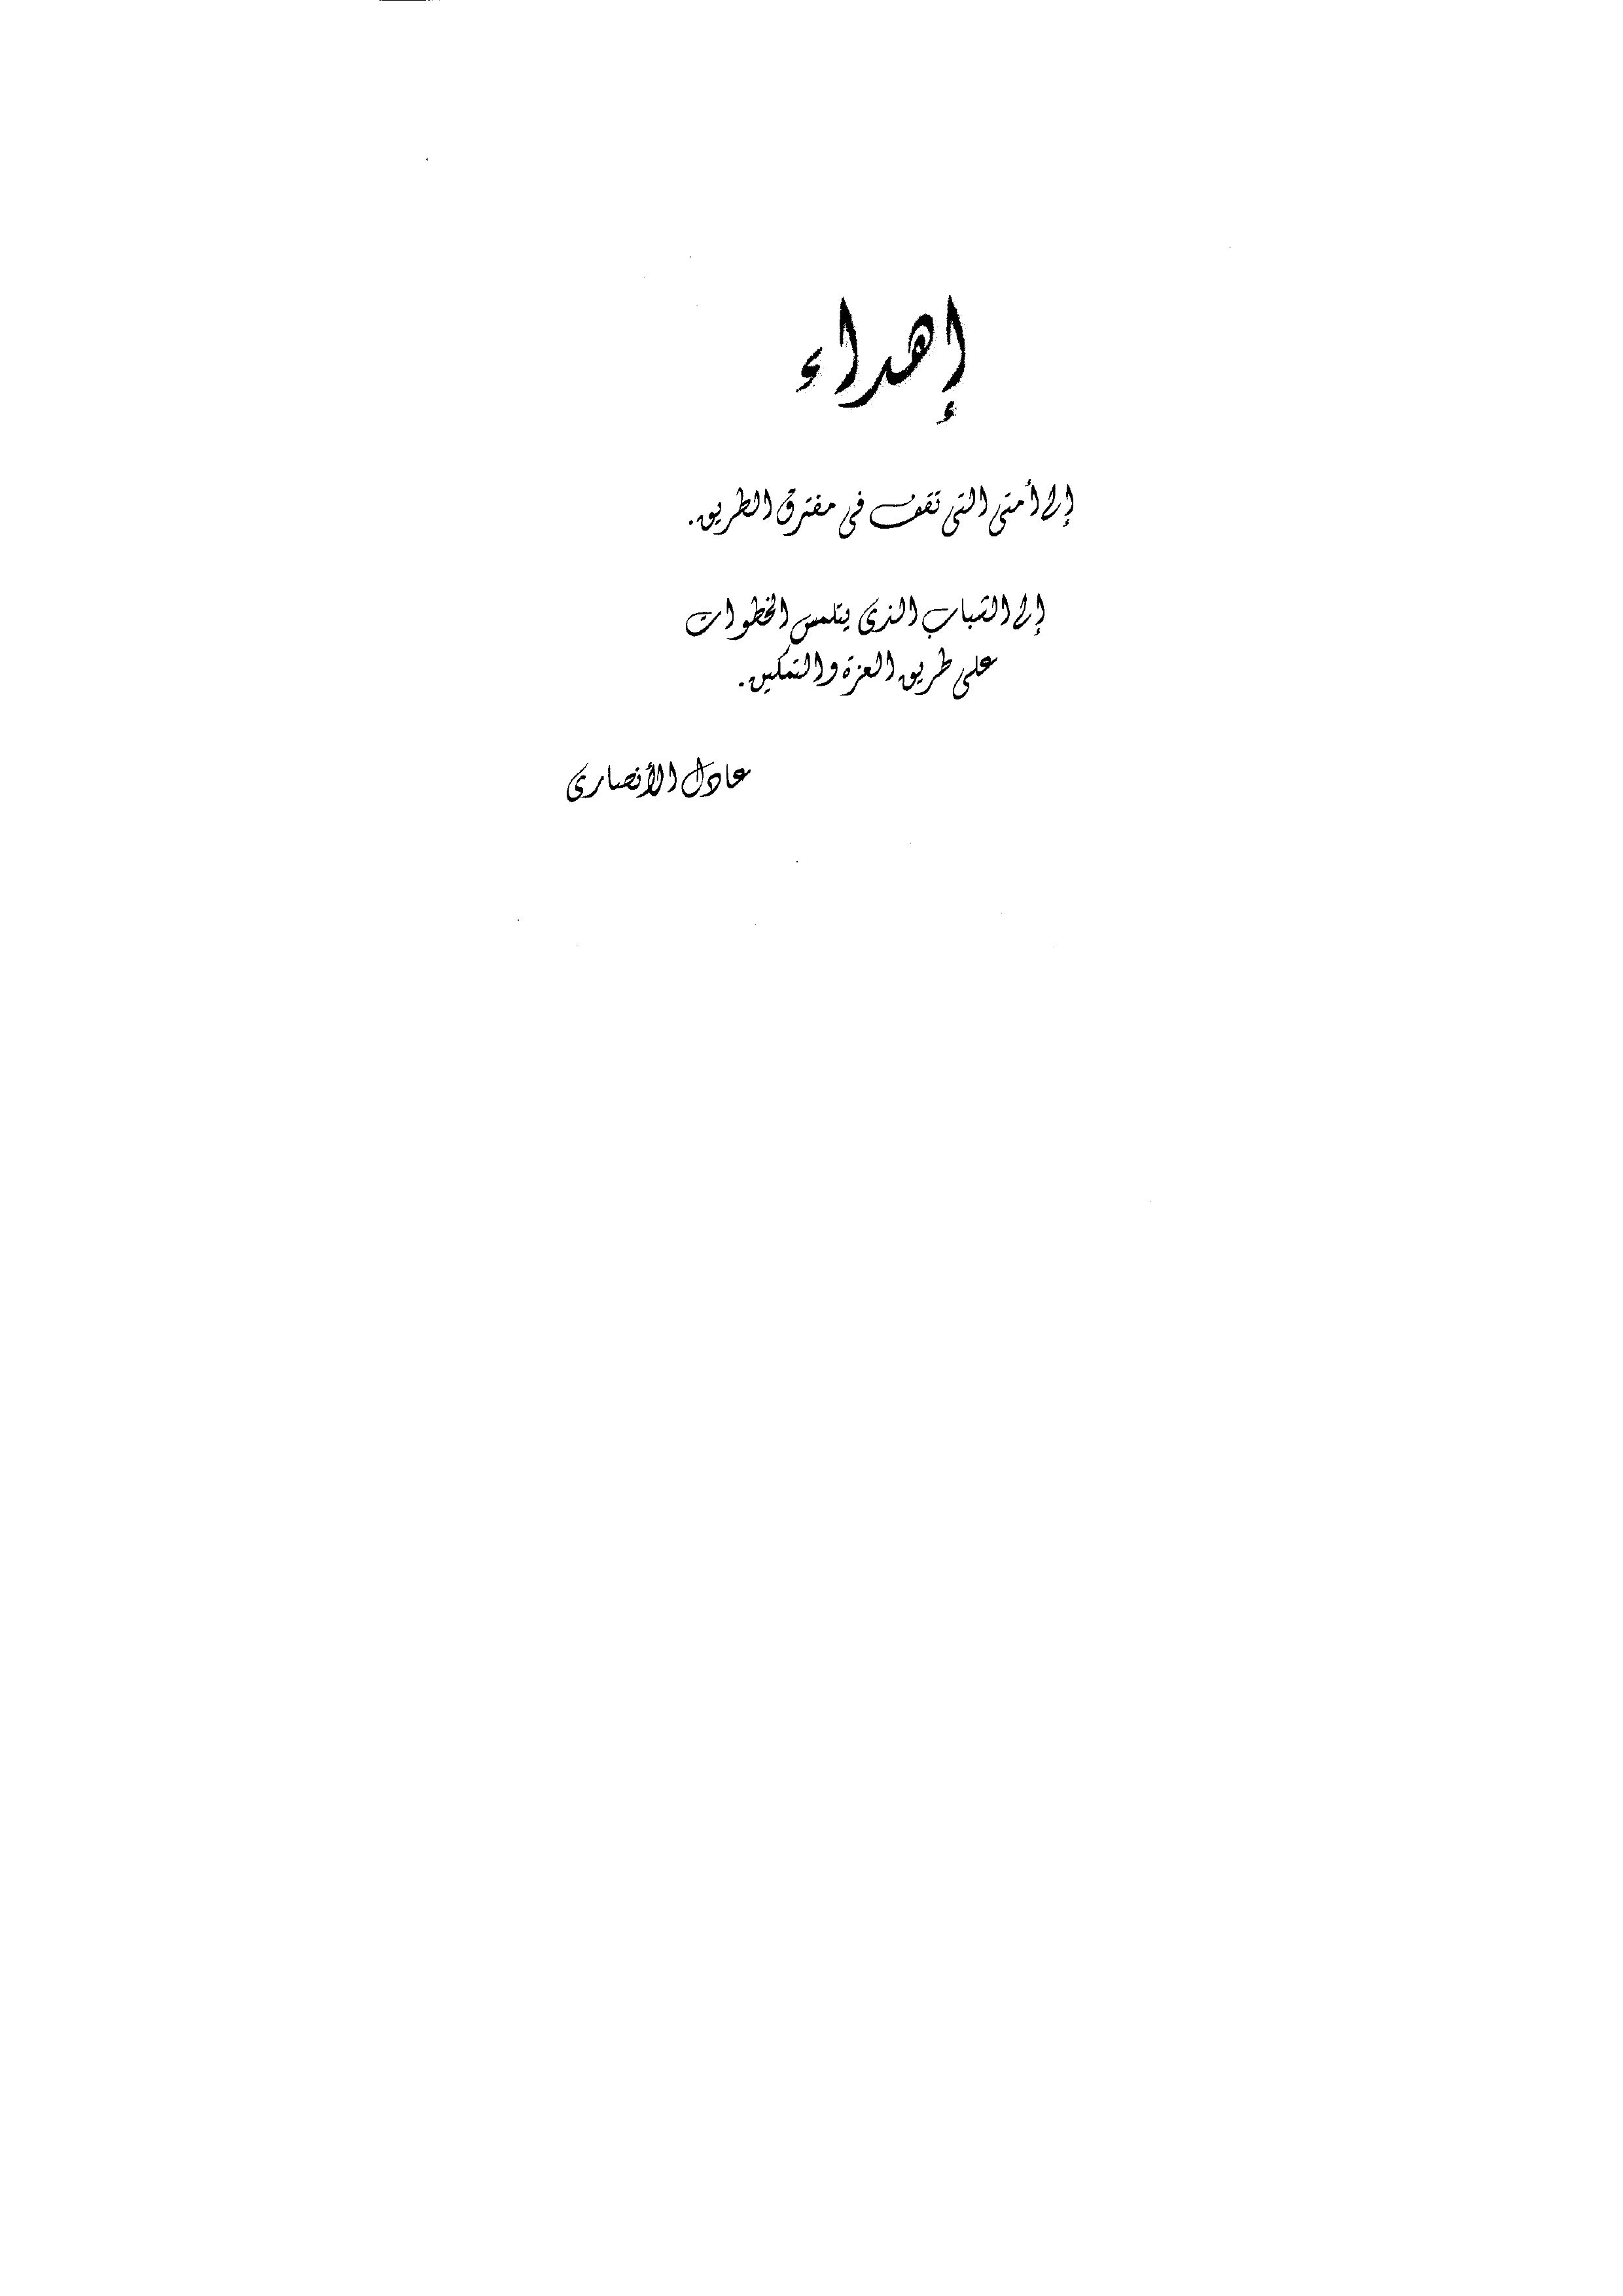 إهداء
إلى أمتى التى تقف فى مفترق الطريق.
إلى الشباب الذى يتلمس الخطوات
على طريق العزة والتمكين.
عادل الأنصارى